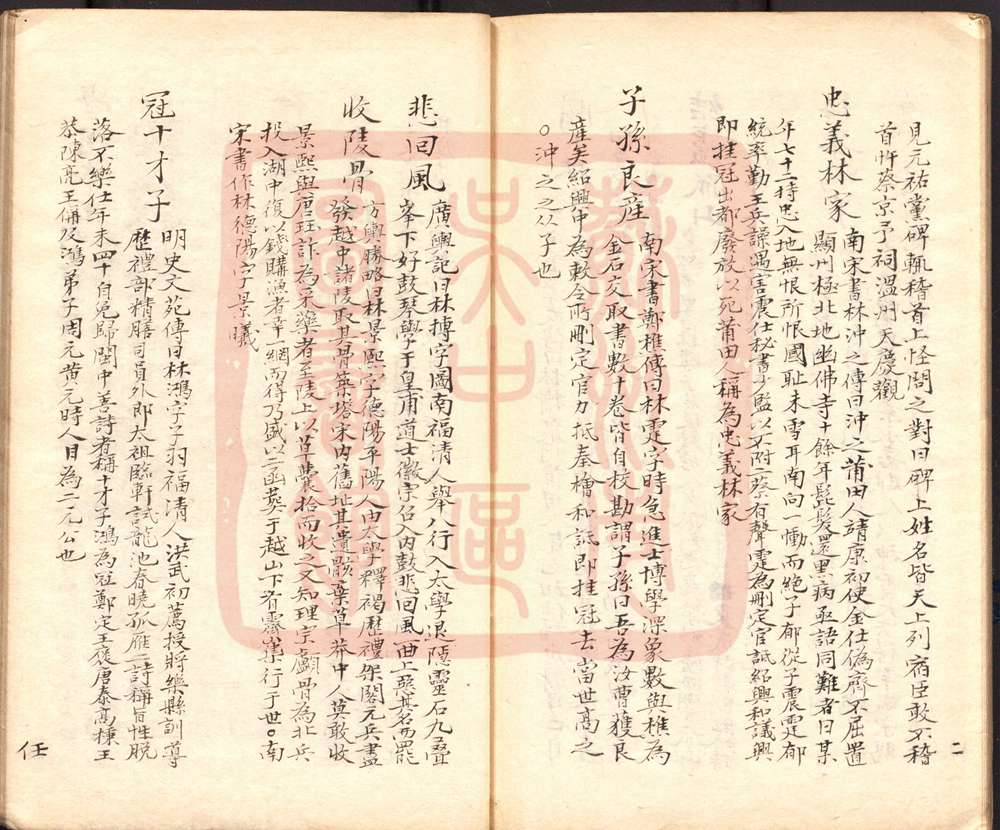 見元祐黨碑輒稽首上怪問之對曰碑上姓名皆天上列宿臣敢不稽
首忤蔡京予祠溫州天慶觀
忠義林家 南宋書林沖之傳曰沖之莆田人靖康初使金仕偽齊不屈置
顯州極北地幽佛寺十餘年髭髮還黑病亟語同難者曰某
年七十二持忠入地無恨所恨國耻未雪耳南向一慟而絕子郁從子震霆郁
統率勤王兵譟遇害震仕秘書少監以不附二蔡有聲霆為刪定官詆紹興和議興
即挂冠出都廢放以死莆田人稱為忠義林家
子孫良產 南宋書鄭樵傳曰林霆字時急進士博學深象數與樵為
金石交取書數十卷皆自校勘謂子孫曰吾為汝曹獲良
產矣紹興中為敕令所刪定官力抵奉檜和詆即挂冠去當世高之
○沖之之从子也
悲回風 廣輿記曰林摶字圖南福清人舉八行入太學退隱靈石九疊
峯下好鼓琴學于皇甫道士徽宗召入內鼓悲回風一曲上惡其名而罷
收陵骨 方輿勝略曰林景熙字德陽平陽人由太學釋褐歷禮架閣元兵盡
發越中諸陵取其骨築塔宋內舊址其遺骸棄草莽中人莫敢收
景熙與唐珏計為采藥者至陵上以草囊拾而收之又知理宗顱骨為北兵
投入湖中復以錢購漁者幸一網而得乃盛以二函葬于越山下有霽集行于世○南
宋書作林德陽字景曦
冠十才子 明史文苑傳曰林鴻字子羽福清人洪武初薦授將樂縣訓導
歷禮部精膳司員外郎太祖臨軒試龍池春曉孤雁二詩稱旨性脫
落不樂仕年未四十自免歸閩中善詩者稱十才子鴻為冠鄭定王褒唐泰高棅王
恭陳亮王偁及鴻弟子周元黄元時人目為二元公也
任
二